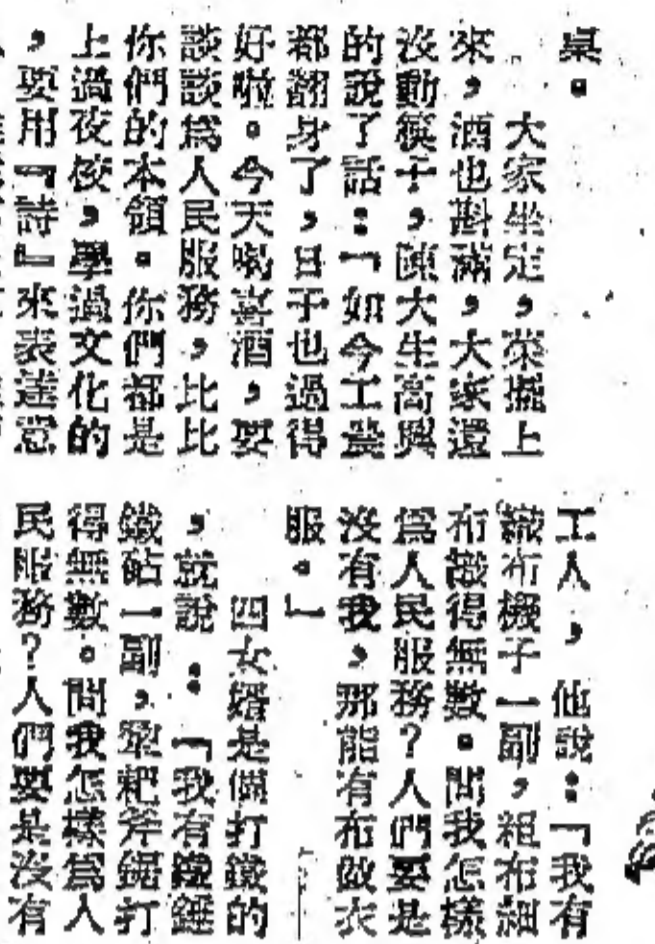 桌。
大家坐定，菜擺上
來，酒也斟滿，大家還
沒動筷子，陳大生高興
的說了話：「如今工農
都翻身了，日子也過得
好啦。今天喝喜酒，要
談談爲人民服務，比比
你們的本領。你們都是
上過夜校，學過文化的
，要用『詩』來表達意
工人，他說：「我有
織布機子一副，粗布細
布織得無數。問我怎樣
爲人民服務？人們要是
沒有我，那能有布做衣
服。」
四女婿是個打鐵的
，就說：「我有鐵錘
鐵砧一副，犂耙斧鋸打
得無數。問我怎樣爲人
民服務？人們要是沒有